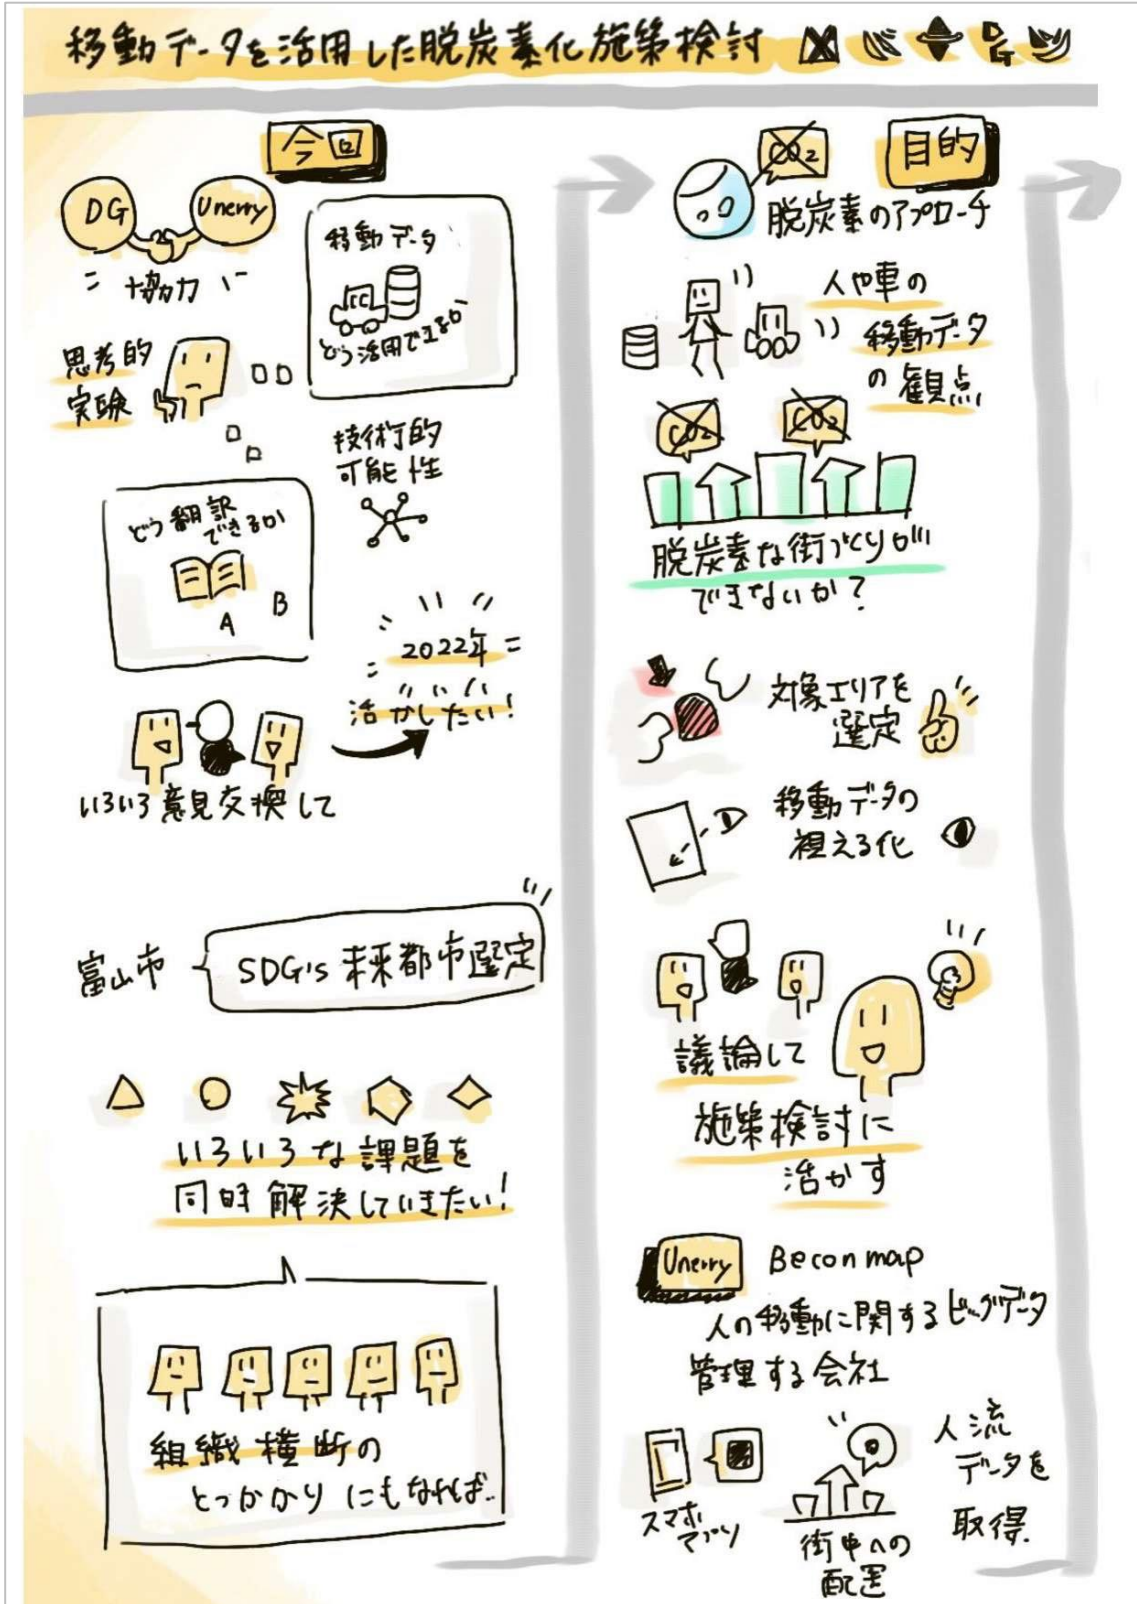 移動データを活用した脱炭素化施策検討
今回
DG
Unerry
協力
移動データ
どう活用できるか
思考的
実験
技術的
可能性
どう翻訳
できるか
A
B
2022年
活かしたい!
いろいろ意見交換して
富山市
SDG's 未来都市選定
いろいろな課題を
同時解決していきたい!
組織横断の
とっかかりにもなれば..
目的
CO2
脱炭素のアプローチ
人や車の
移動データ
の観点
CO2
CO2
脱炭素な街づくりが
できないか?
対象エリアを
選定
移動データの
視える化
議論して
施策検討に
活かす
Unerry
Beconmap
人の移動に関するビッグデータ
管理する会社
スマホ
アプリ
街中への
配置
人流
データを
取得.